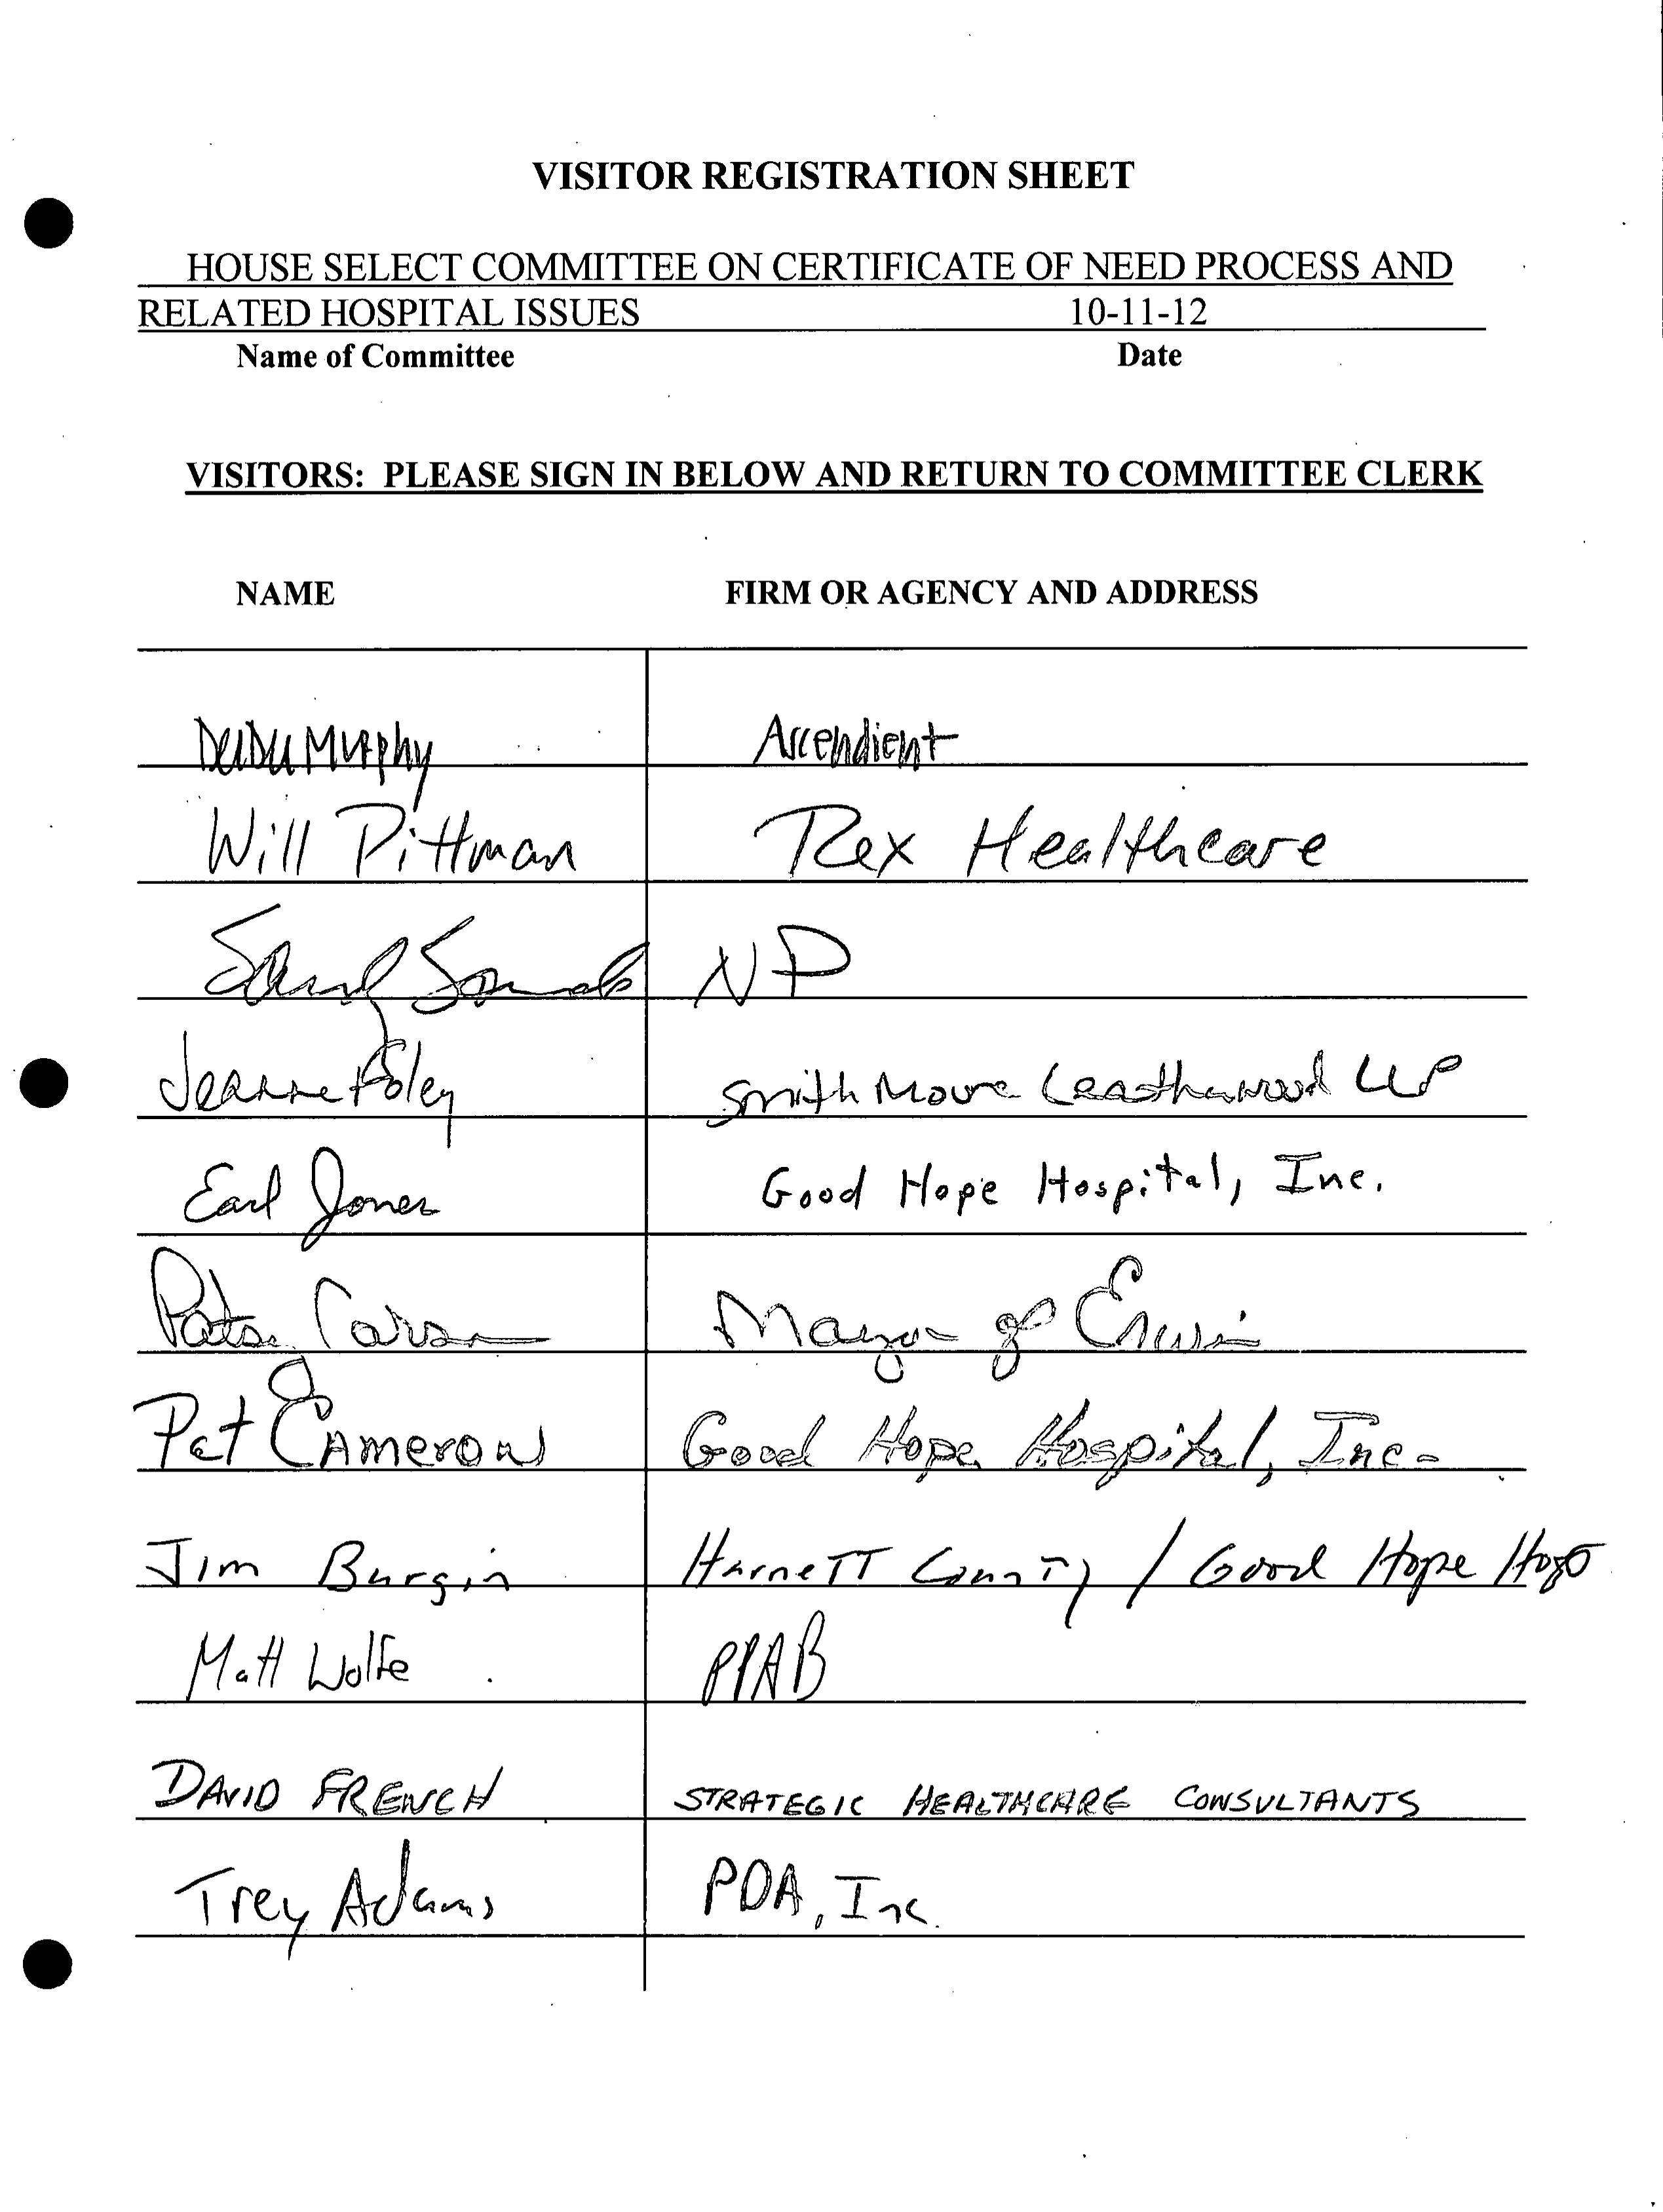 VISITOR REGISTRATION SHEET
HOUSE SELECT COMMITTEE ON CERTIFICATE OF NEED PROCESS AND
RELATED HOSPITAL ISSUES 10-11-12
Name of Committee Date
VISITORS: PLEASE SIGN IN BELOW AND RETURN TO COMMITTEE CLERK
NAME FIRM OR AGENCY AND ADDRESS
Murphy Ascendient
Will Pittman Rex Healthcare
NP
Jeanne Foley Smith Moore Leatherwood LLP
Earl Jones Good Hope Hospital, Inc.
Patsy Carson Mayor of Erwin
Pat Cameron Good Hope Hospital, Inc.
Jim Burgin Harnett County / Good Hope Hosp
Matt Wolfe PPAB
DAVID FRENCH STRATEGIC HEALTHCARE CONSULTANTS
Trey Adams PDA, Inc.